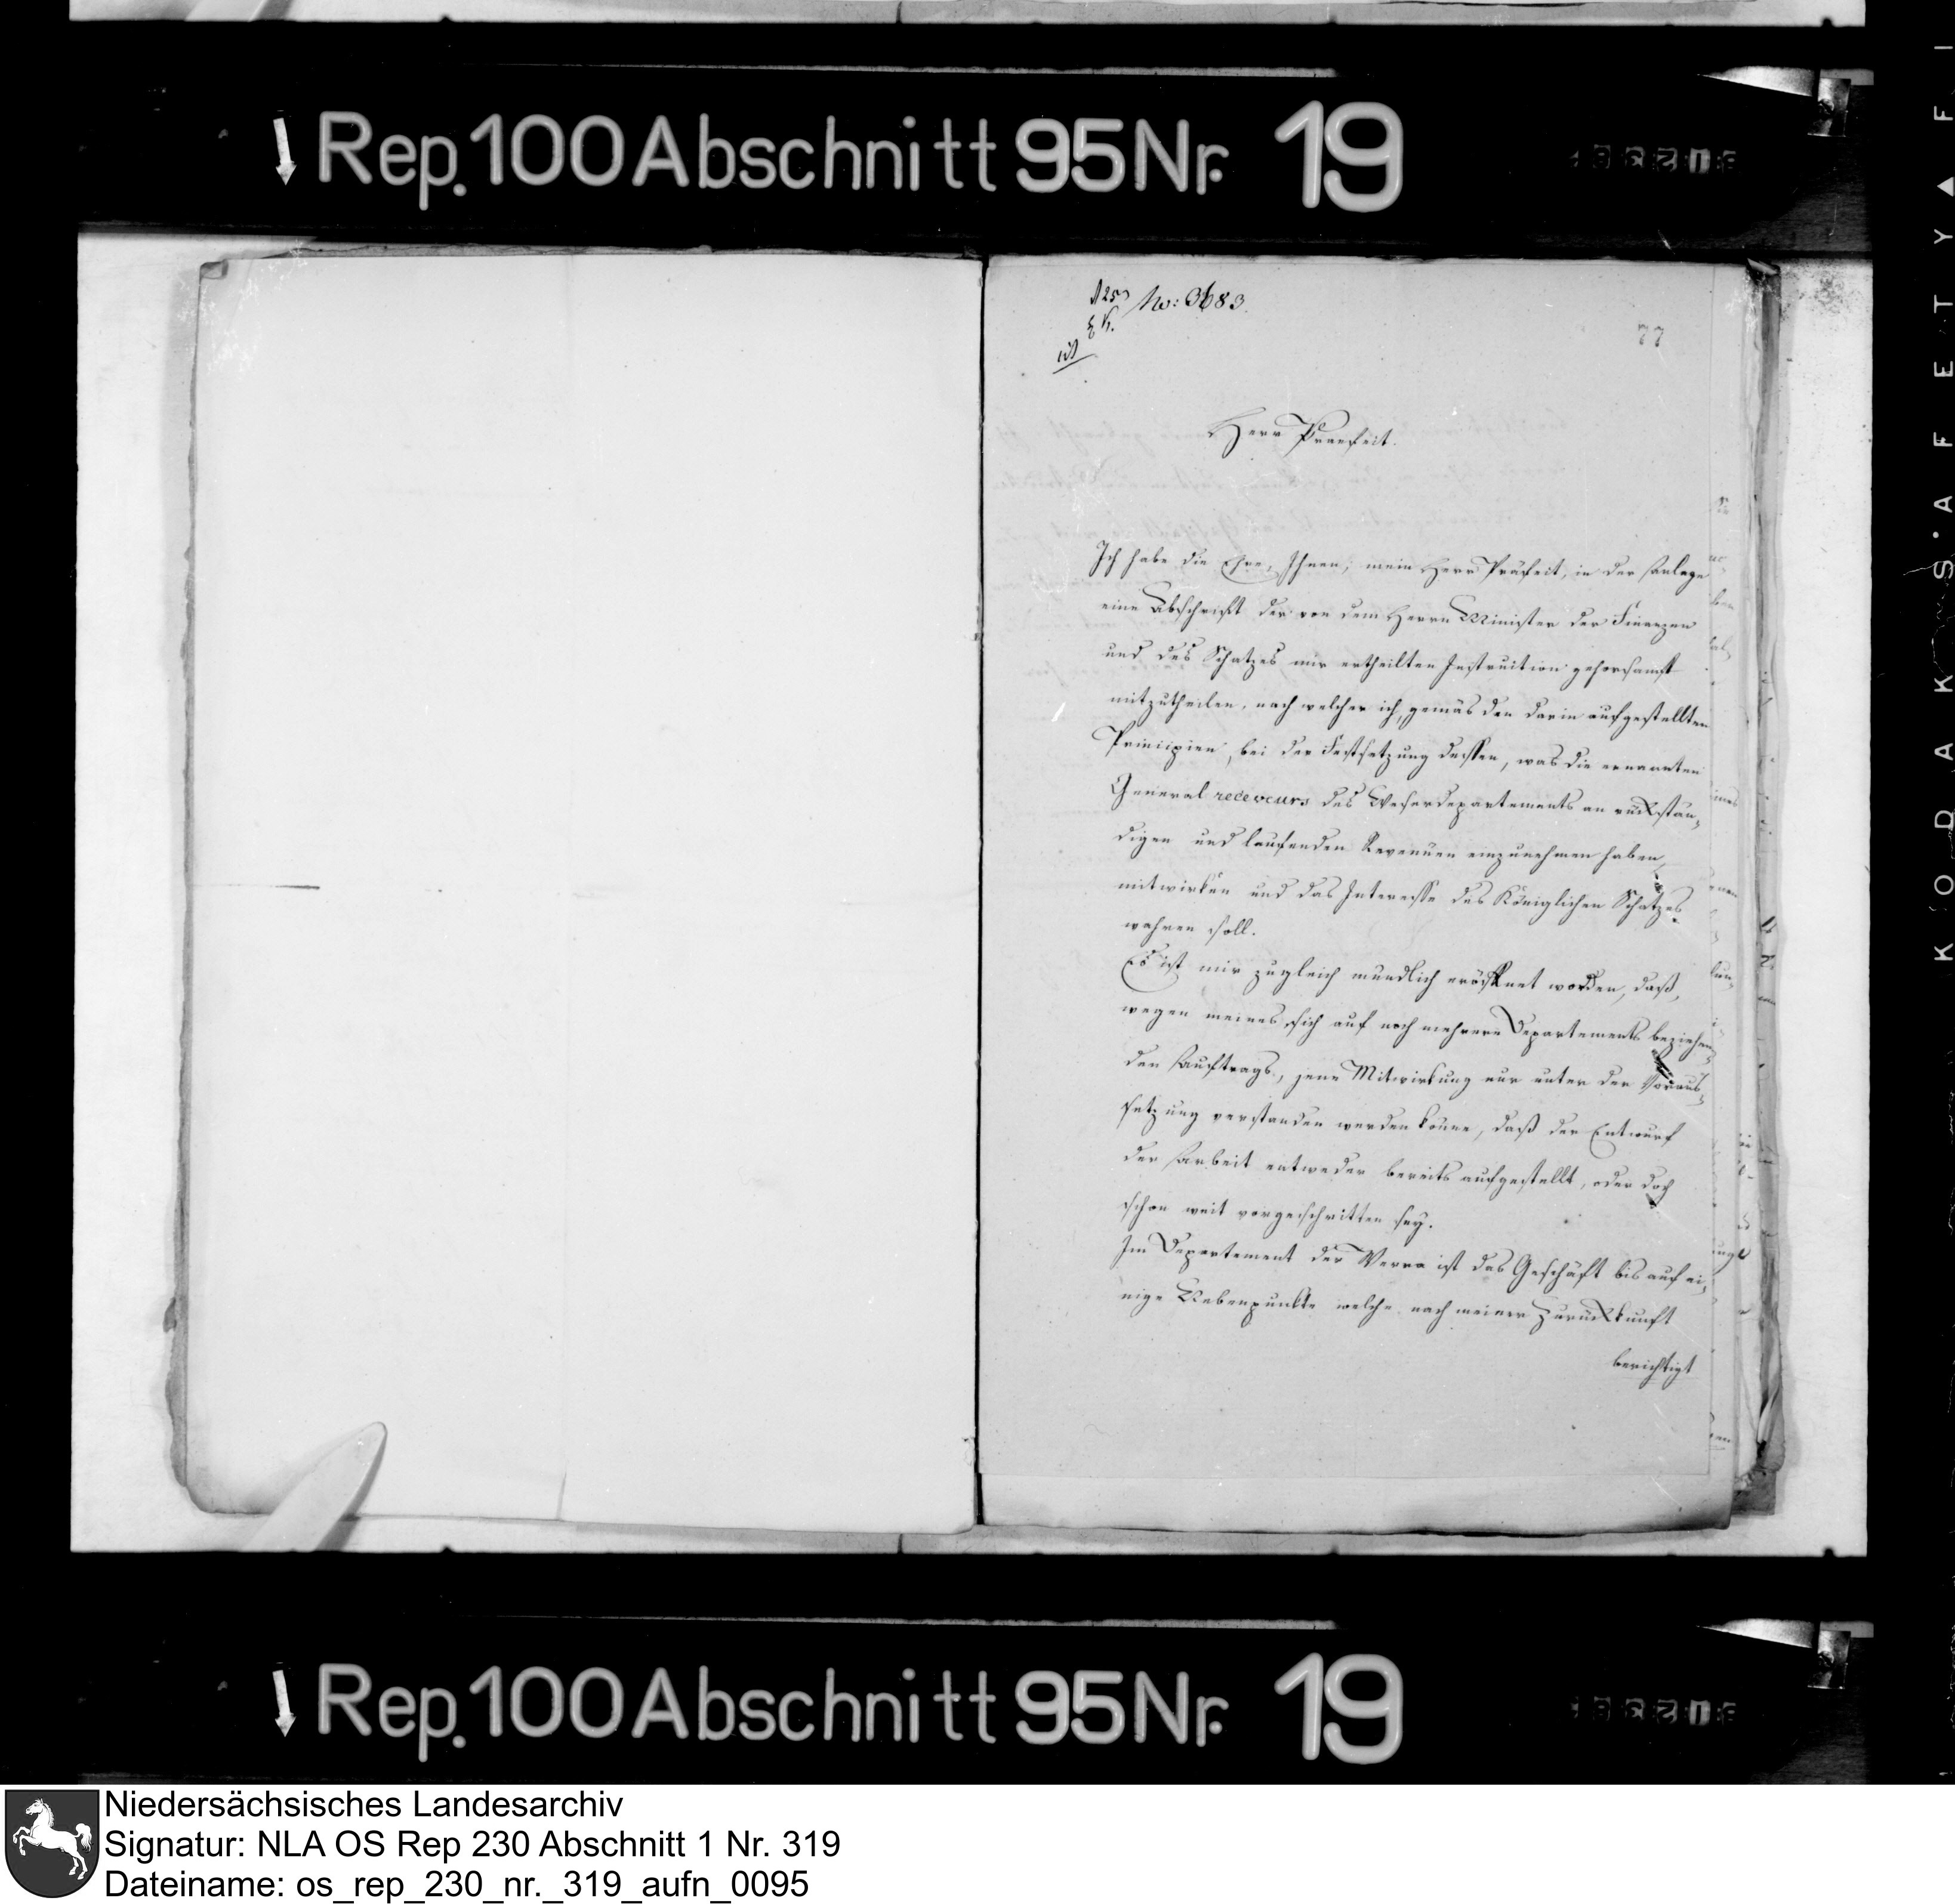 Rep. 100 Abschnitt 95 Nr. 19
No: 3683.
77
Herr Praefect.
Ich habe die Ehre, Ihnen, mein Herr Präfect, in der Anlage
eine Abschrift der von dem Herrn Minister der Finanzen
und des Schatzes mir ertheilten Instruction gehorsamst
mitzutheilen, nach welcher ich, gemäs den darin aufgestellten
Principien, bei der Festsetzung dessen, was die ernannten
General receveurs des Weserdepartements an rückstän-
digen und laufenden Revenüen einzunehmen haben,
mitwirken und das Interesse des Königlichen Schatzes
wahren soll.
Es ist mir zugleich mündlich eröffnet worden, daß,
wegen meines sich auf noch mehrere Departements beziehen-
den Auftrags, jene Mitwirkung nur unter der Voraus-
setzung verstanden werden könne, daß der Entwurf
der Arbeit entweder bereits aufgestellt, oder doch
schon weit vorgeschritten sey.
Im Departement der Werra ist das Geschäft bis auf ei-
nige Nebenpunkte welche nach meiner Zurückkunft
berichtigt
Rep. 100 Abschnitt 95 Nr. 19
KODAK SAFETY F
Niedersächsisches Landesarchiv
Signatur: NLA OS Rep 230 Abschnitt 1 Nr. 319
Dateiname: os_rep_230_nr._319_aufn_0095